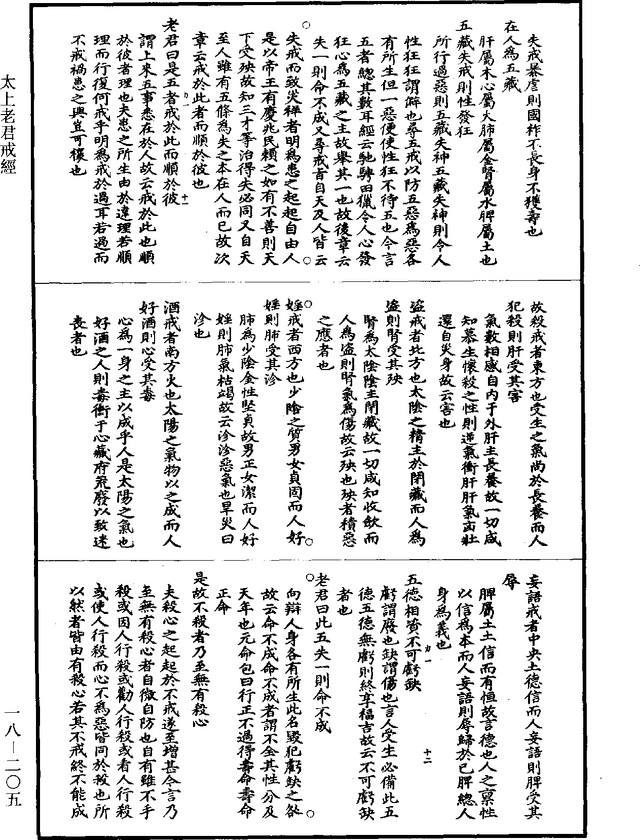 失戒暴虐則國祚不長身不獲壽也
在人為五藏
肝屬木心屬火肺屬金腎屬水脾屬土也
五藏失戒則性發狂
所行過惡則五藏失神五藏失神則令人
性狂狂謂僻也尋五戒以防五惡為惡各
有所生但一惡便使性狂不待五也今言
五者總其數耳經云馳騁田獵令人心發
狂心為五藏之主故舉其一也故後章云
失一則命不成又尋戒首自天及人皆云
失戒而致災祥者明為患之起起自由人
是以帝王有慶兆民賴之如有不善則天
下受殃故知三才等治得失必同又自天
至人雖有五條為失之本在人而已故次
章云戒於此者而順於彼也
老君曰是五者戒於此而順於彼
謂上來五事悉在於人故云戒於此也順
於彼者理也夫患之所生由於違理若順
理而行復何戒乎明為戒於過耳若過而
不戒禍患之興豈可禳也
故殺戒者東方也受生之氣尚於長養而人
犯殺則肝受其害
氣數相感自內于外肝主長養故一切咸
知慕生懷殺之性則逆氣衝肝肝氣
還自災身故云害也
盜戒者北方也太陰之精主於閉藏而人為
盜則腎受其殃
腎為太陰陰主閉藏故一切咸知收斂而
人為盜則腎氣為傷故云殃也殃者積惡
之應者也
婬戒者西方也少陰之質男女貞固而人好
婬則肺受其沴
肺為少陰金性堅貞故男正女潔而人好
婬則肺氣枯竭故云沴沴惡氣也旱災曰
沴也
酒戒者南方火也太陽之氣物以之成而人
好酒則心受其毒
心為一身之主以成乎人是太陽之氣也
好酒之人則毒衝于心藏府飛廢以致迷
喪者也
妄語戒者中央土德信而人妄語則脾受其
辱
脾屬土土信而有恒故言德也人之稟性
以信為本而人妄語則辱歸於己脾總人
身為義也
五德相資不可虧缺
虧謂廢也缺謂傷也言人受生必備此五
德五德無虧則終享福吉故云不可虧缺
者也
老君曰此五失一則命不成
向辯人身各有所生此名毀犯虧缺之咎
故云命不成命不成者謂不全其性分及
天年也元命包曰行正不過得壽命壽命
正命
是故不殺者乃至無有殺心
夫殺心之起起於不戒遂至增甚今言乃
至無有殺心者自微自防也自有雖不手
殺或因人行殺或勸人行殺或看人行殺
或使人行殺而心不為惡皆同於殺也所
以然者皆由有殺心若其不戒終不能成
太上老君戒經
一八－二〇五